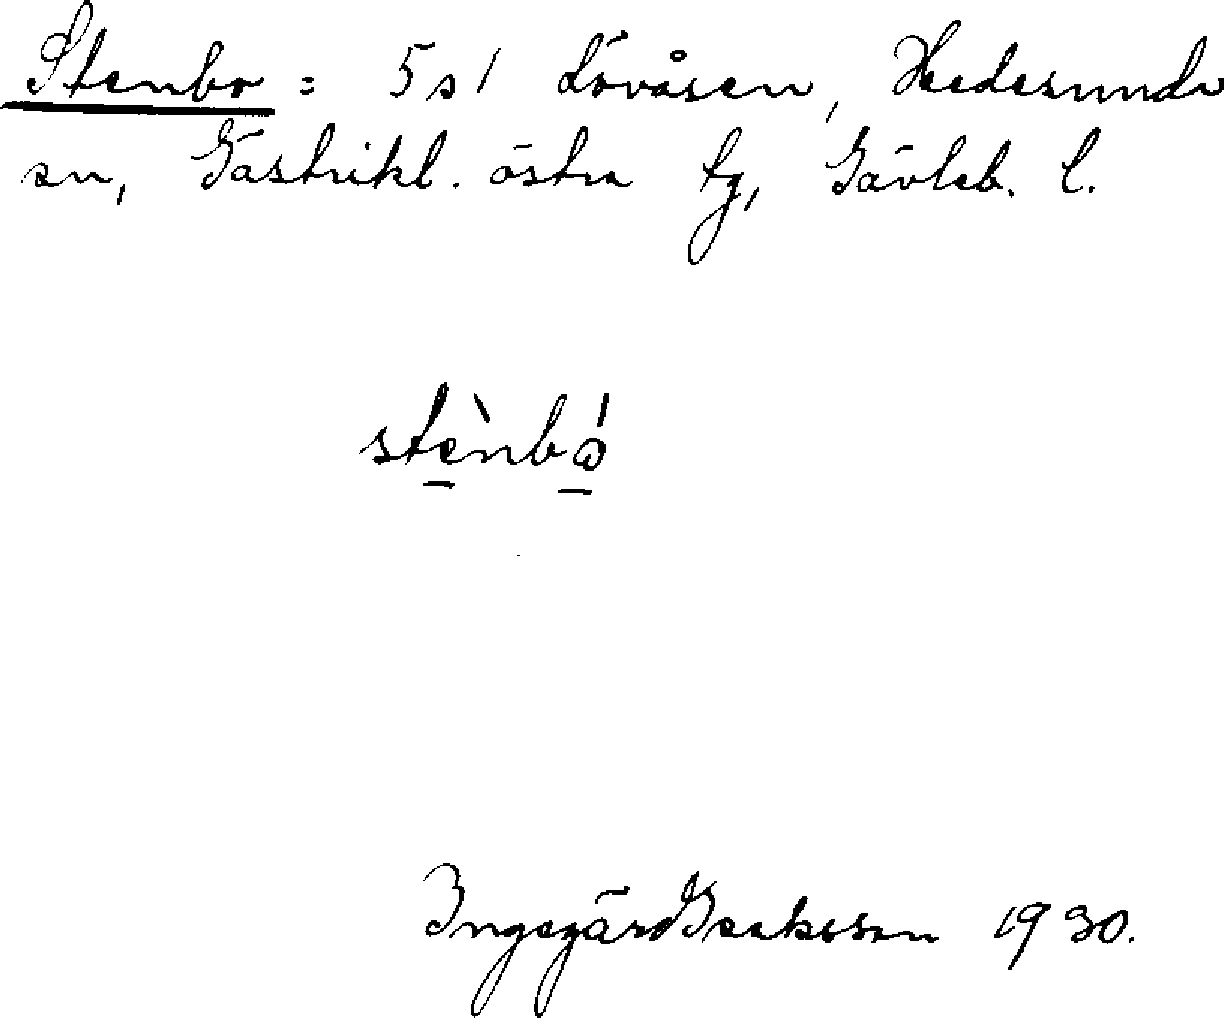 Stenbo = 5s1 Lövåsen, Hedesunda
sn, Gästrikl. östra tg, Gävleb. l.
stènbó
Ingegärd Isaksson 1930.